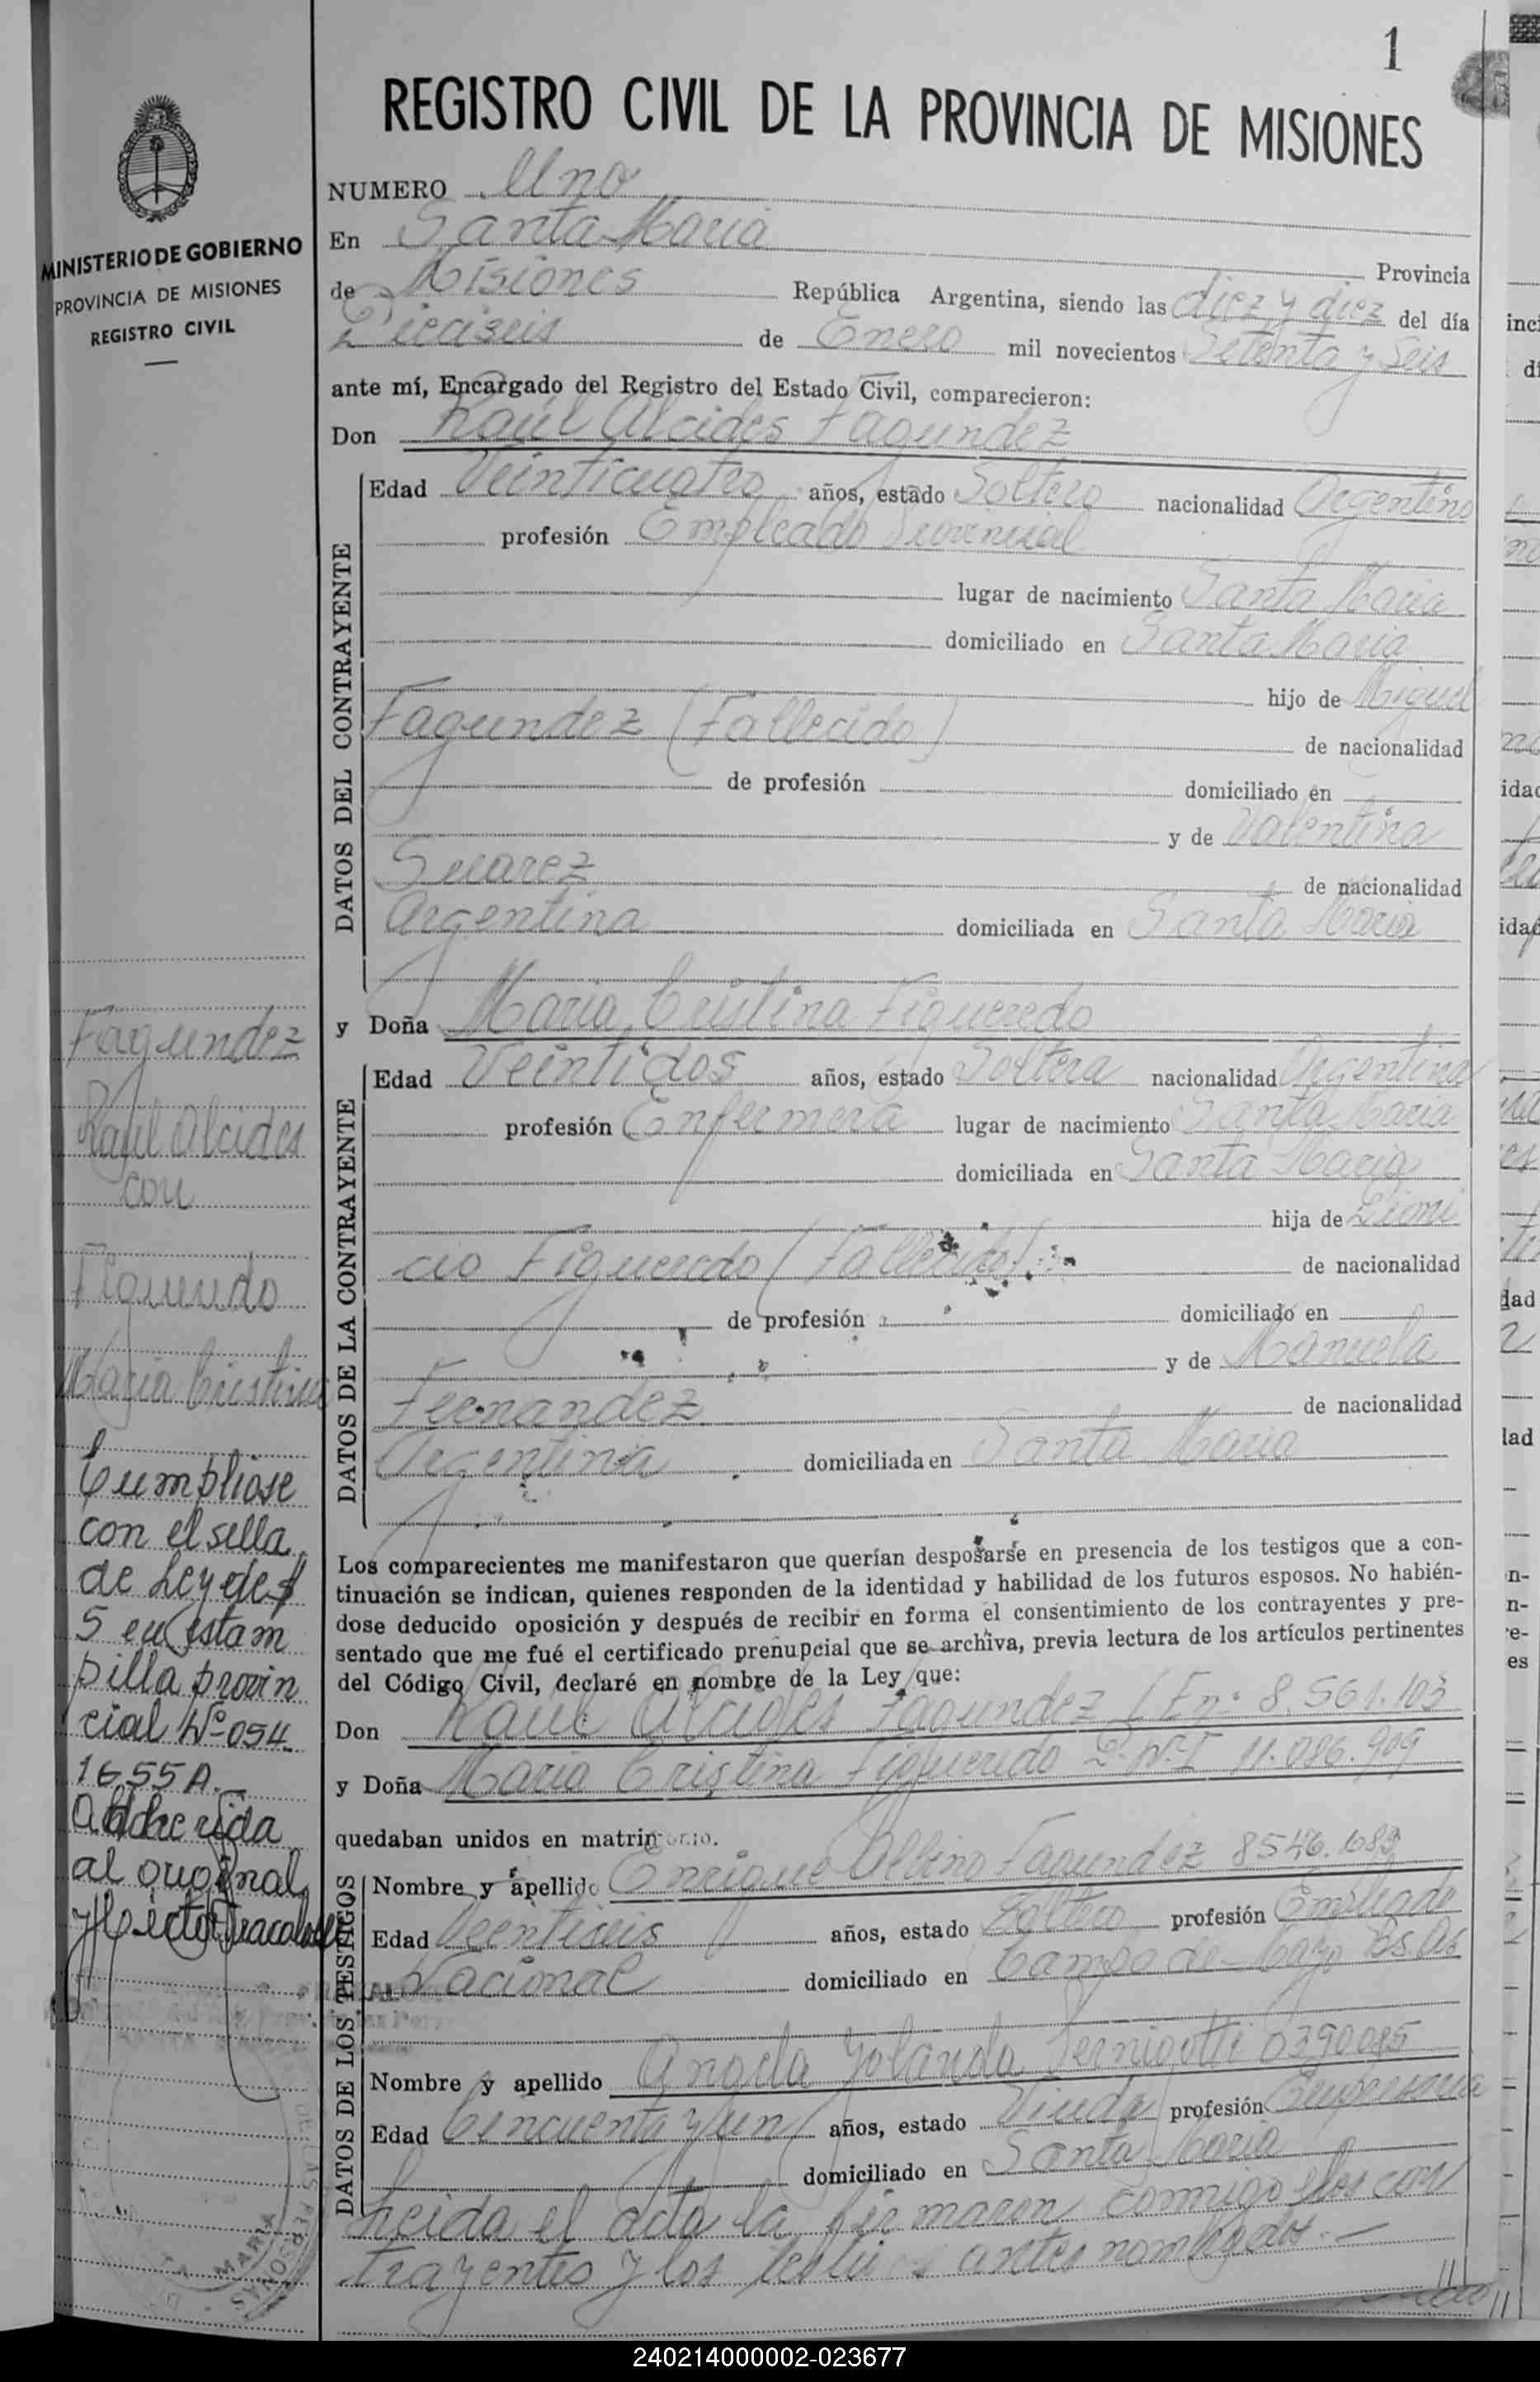 1
REGISTRO CIVIL DE LA PROVINCIA DE MISIONES
MINISTERIO DE GOBIERNO
PROVINCIA DE MISIONES
REGISTRO CIVIL
NUMERO Uno
En Santa Maria Provincia
de Misiones República Argentina, siendo las diez y diez del día
Dieciseis de Enero mil novecientos Setenta y Seis
ante mí, Encargado del Registro del Estado Civil, comparecieron:
Don Raúl Alcides Fagundez
DATOS DEL CONTRAYENTE
Edad Veinticuatro años, estado Soltero nacionalidad Argentino
profesión Empleado Provincial
lugar de nacimiento Santa Maria
domiciliado en Santa Maria
hijo de Miguel
Fagundez (Fallecido) de nacionalidad
de profesión domiciliado en
y de Valentina
Suarez de nacionalidad
Argentina domiciliada en Santa Maria
y Doña Maria Cristina Figueredo
DATOS DE LA CONTRAYENTE
Edad Veintidos años, estado Soltera nacionalidad Argentina
profesión Enfermera lugar de nacimiento Santa Maria
domiciliada en Santa Maria
hija de Dioni
cio Figueredo (Fallecido) de nacionalidad
de profesión domiciliado en
y de Manuela
Fernandez de nacionalidad
Argentina domiciliada en Santa Maria
Los comparecientes me manifestaron que querían desposarse en presencia de los testigos que a con-
tinuación se indican, quienes responden de la identidad y habilidad de los futuros esposos. No habién-
dose deducido oposición y después de recibir en forma el consentimiento de los contrayentes y pre-
sentado que me fué el certificado prenupcial que se archiva, previa lectura de los artículos pertinentes
del Código Civil, declaré en nombre de la Ley que:
Don Raúl Alcides Fagundez L En° 8.561.103
y Doña Maria Cristina Figueredo D.N.I 11.086.909
quedaban unidos en matrimonio.
DATOS DE LOS TESTIGOS
Nombre y apellido Enrique Albino Fagundez 8546.1083
Edad Veentiseis años, estado Soltero profesión Empleado
Nacional domiciliado en Campo de Mayo Bs. As
Nombre y apellido Angela Yolanda Pernigotti 0390085
Edad Cincuenta y un años, estado Viuda profesión
domiciliado en Santa Maria
Leida el acta la firmaron conmigo los con
trayentes y los testigos antes nombrados.—
Fagundez
Raúl Alcides
con
Figueredo
Maria Cristina
Cumpliose
con el sella
de Ley de $
5 en estam
pilla provin
cial Nº 054
1655 A.
adherida
al original
240214000002-023677